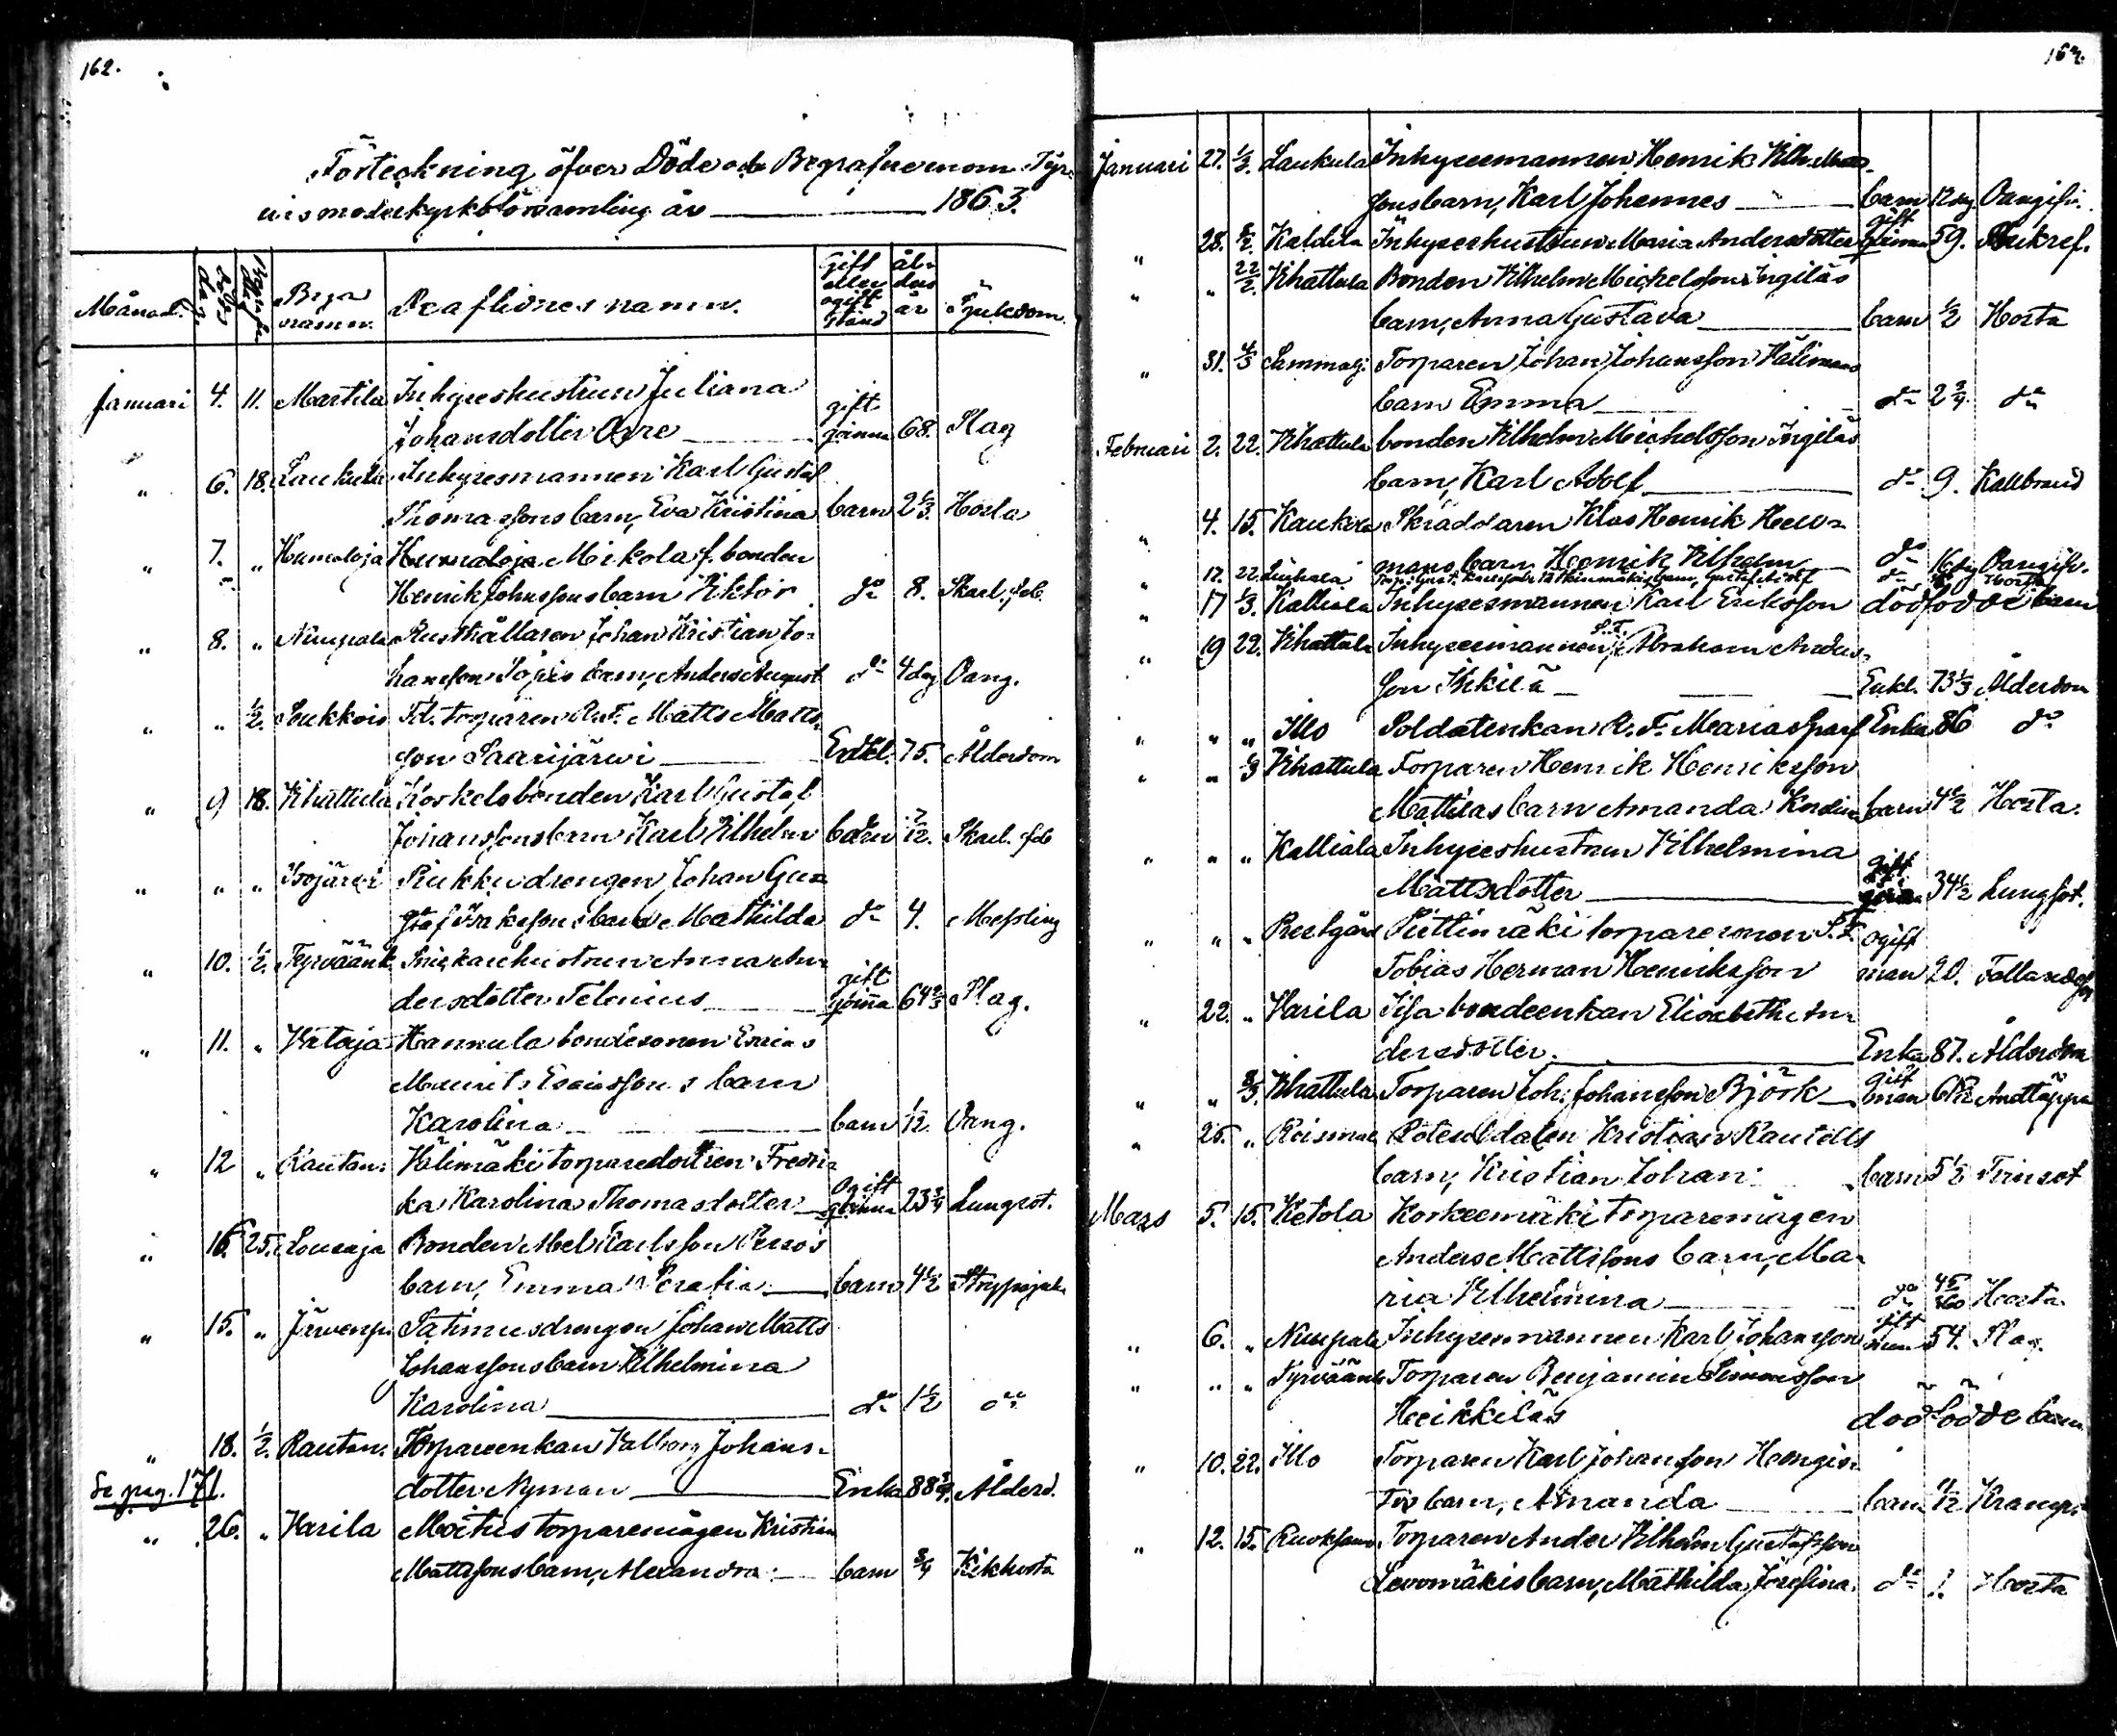 162.
Förteckning öfver Döde och Begrafne inom Tyr-
vis moderkyrkoförsamling år 1863.
Månad. Dödes dag Begrafn. Byanamn. De aflidnes namn. Gift eller ogift stånd ålders år Sjukdom.
Januari 4. 11. Martila Inhyseshustrun Juliana
Johansdotter gift qvinna 68. Slag
" 6. 18. Laukula Inhysesmannen Karl Gustaf
Thomassons barn, Eva Kristina barn 2 1/3. Hosta
" 7. " Humaloja Humaloja Mikola f. bonden
Henrik Johnssons barn Viktor do 8. Skarl. feb.
" 8. " Nuupala Rusthållaren Johan Kristian Jo-
hansson barn, Anders August do 4 dag Oang.
" " 1/2. Torparen Matts Matts-
son Saarijärvi Enkl. 75. Ålderdom
" 9 18. Vihattula Koskelsbonden Karl Gustaf
Johanssons barn Karl Vilhelm barn 7/12. Skarl. feb
" " " Isojärvi drengen Johan Gu-
staf Isakssons barn Mathilda do 4. Messling
" 10. 1/2. Tyrväänk. hustrun Anna An-
dersdotter Telenius gift qvinna 64 2/3 Slag.
" 11. " Vataja Hannula bondesonen Esaias
Maurits Esaiassons barn
Karolina barn 1/12 Oang.
" 12 " Rautan. Välimäki torparedottren Fredri-
ka Karolina Thomasdotter Ogift qvinna 23 3/4 Lungsot.
" 16. 25. Lousaja Bonden Abel Karlsson
barn, Emma Serafia barn 4 1/2 Strypsjuk.
" 15. " Järvenp. drengen Johan Matts
Johanssons barn Vilhelmina
Karolina do 1 1/2 do
" 18. 1/2. Rautan. Torpareenkan Valborg Johans-
dotter Nyman Enka 88 3/4. Ålderd.
Se pag. 171.
" 26. " Varila torparemågen Kristian
Mattssons barn, Alexandra barn 3/4 Kikhosta
163.
Januari 27. 1/3. Laukula Inhysesmannen Henrik Vilh. Matts-
sons barn, Karl Johannes barn 12 dag Oangifv.
" 28. 8/2. Kaldila Inhyseshustrun Maria Andersdotter gift qvinna 59.
" " 22/2. Vihattula Bonden Vilhelm Mickelsson Ingiläs
barn, Anna Gustava barn 1/2 Hosta
" 31. 4/3 Sammalj. Torparen Johan Johansson Välimäki
barn Emma do 2 3/4 do
Februari 2. 22. Vihattula bonden Vilhelm Michelsson Ingiläs
barn, Karl Adolf do 9. Kallbrand
" 4. 15. Kaukola Skräddaren Klas Henrik Hell-
mans barn Henrik Vilhelm do 16 dag Oangifv.
" 17. 22. Liuhala
" 17 1/3. Kalliala Inhysesmannen Karl Eriksson dödfödde barn
" 19 22. Vihattula Inhysesmannen S.F. Abraham Anders-
son Enkl. 73 1/3 Ålderdom
" " " Illo Soldatenkan R. F. Maria Sparf Enka 86 do
" " 1/3 Vihattula Torparen Henrik Henriksson
Mattilas barn Amanda barn 4 1/2 Hosta.
" " " Kalliala Inhyseshustrun Vilhelmina
Mattsdotter gift qvinna 34 1/2 Lungsot.
" " " Prestgård torparesonen S. F.
Tobias Herman Henriksson ogift man 20. Fallandesot
" 22. " Varila bondeenkan Elisabeth An-
dersdotter. Enka 87. Ålderdom
" " 8/3. Vihattula Torparen Joh. Johansson Björk gift man Andtäppa
" 25. " Roismala Kristian Rautells
barn, Kristian Johan barn 5 1/2 Trinsot
Mars 5. 15. Ketola Korkeemäki torparemågen
Anders Mattssons barn, Ma-
ria Vilhelmina do 45/360 Hosta
" 6. " Nuupala Inhysesmannen Karl Johansson gift man 54. Slag.
" " " Tyrväänk. Torparen Benjamin Simonsson
Heikkiläs dödfödde barn
" 10. 22. Illo Torparen Karl Johansson Hongis-
tos barn, Amanda barn 11/12 Kramp.
" 12. 15. Torparen Anders Vilhelm Gustafsson
Levomäkis barn, Mathilda Josefina do 1. Hosta